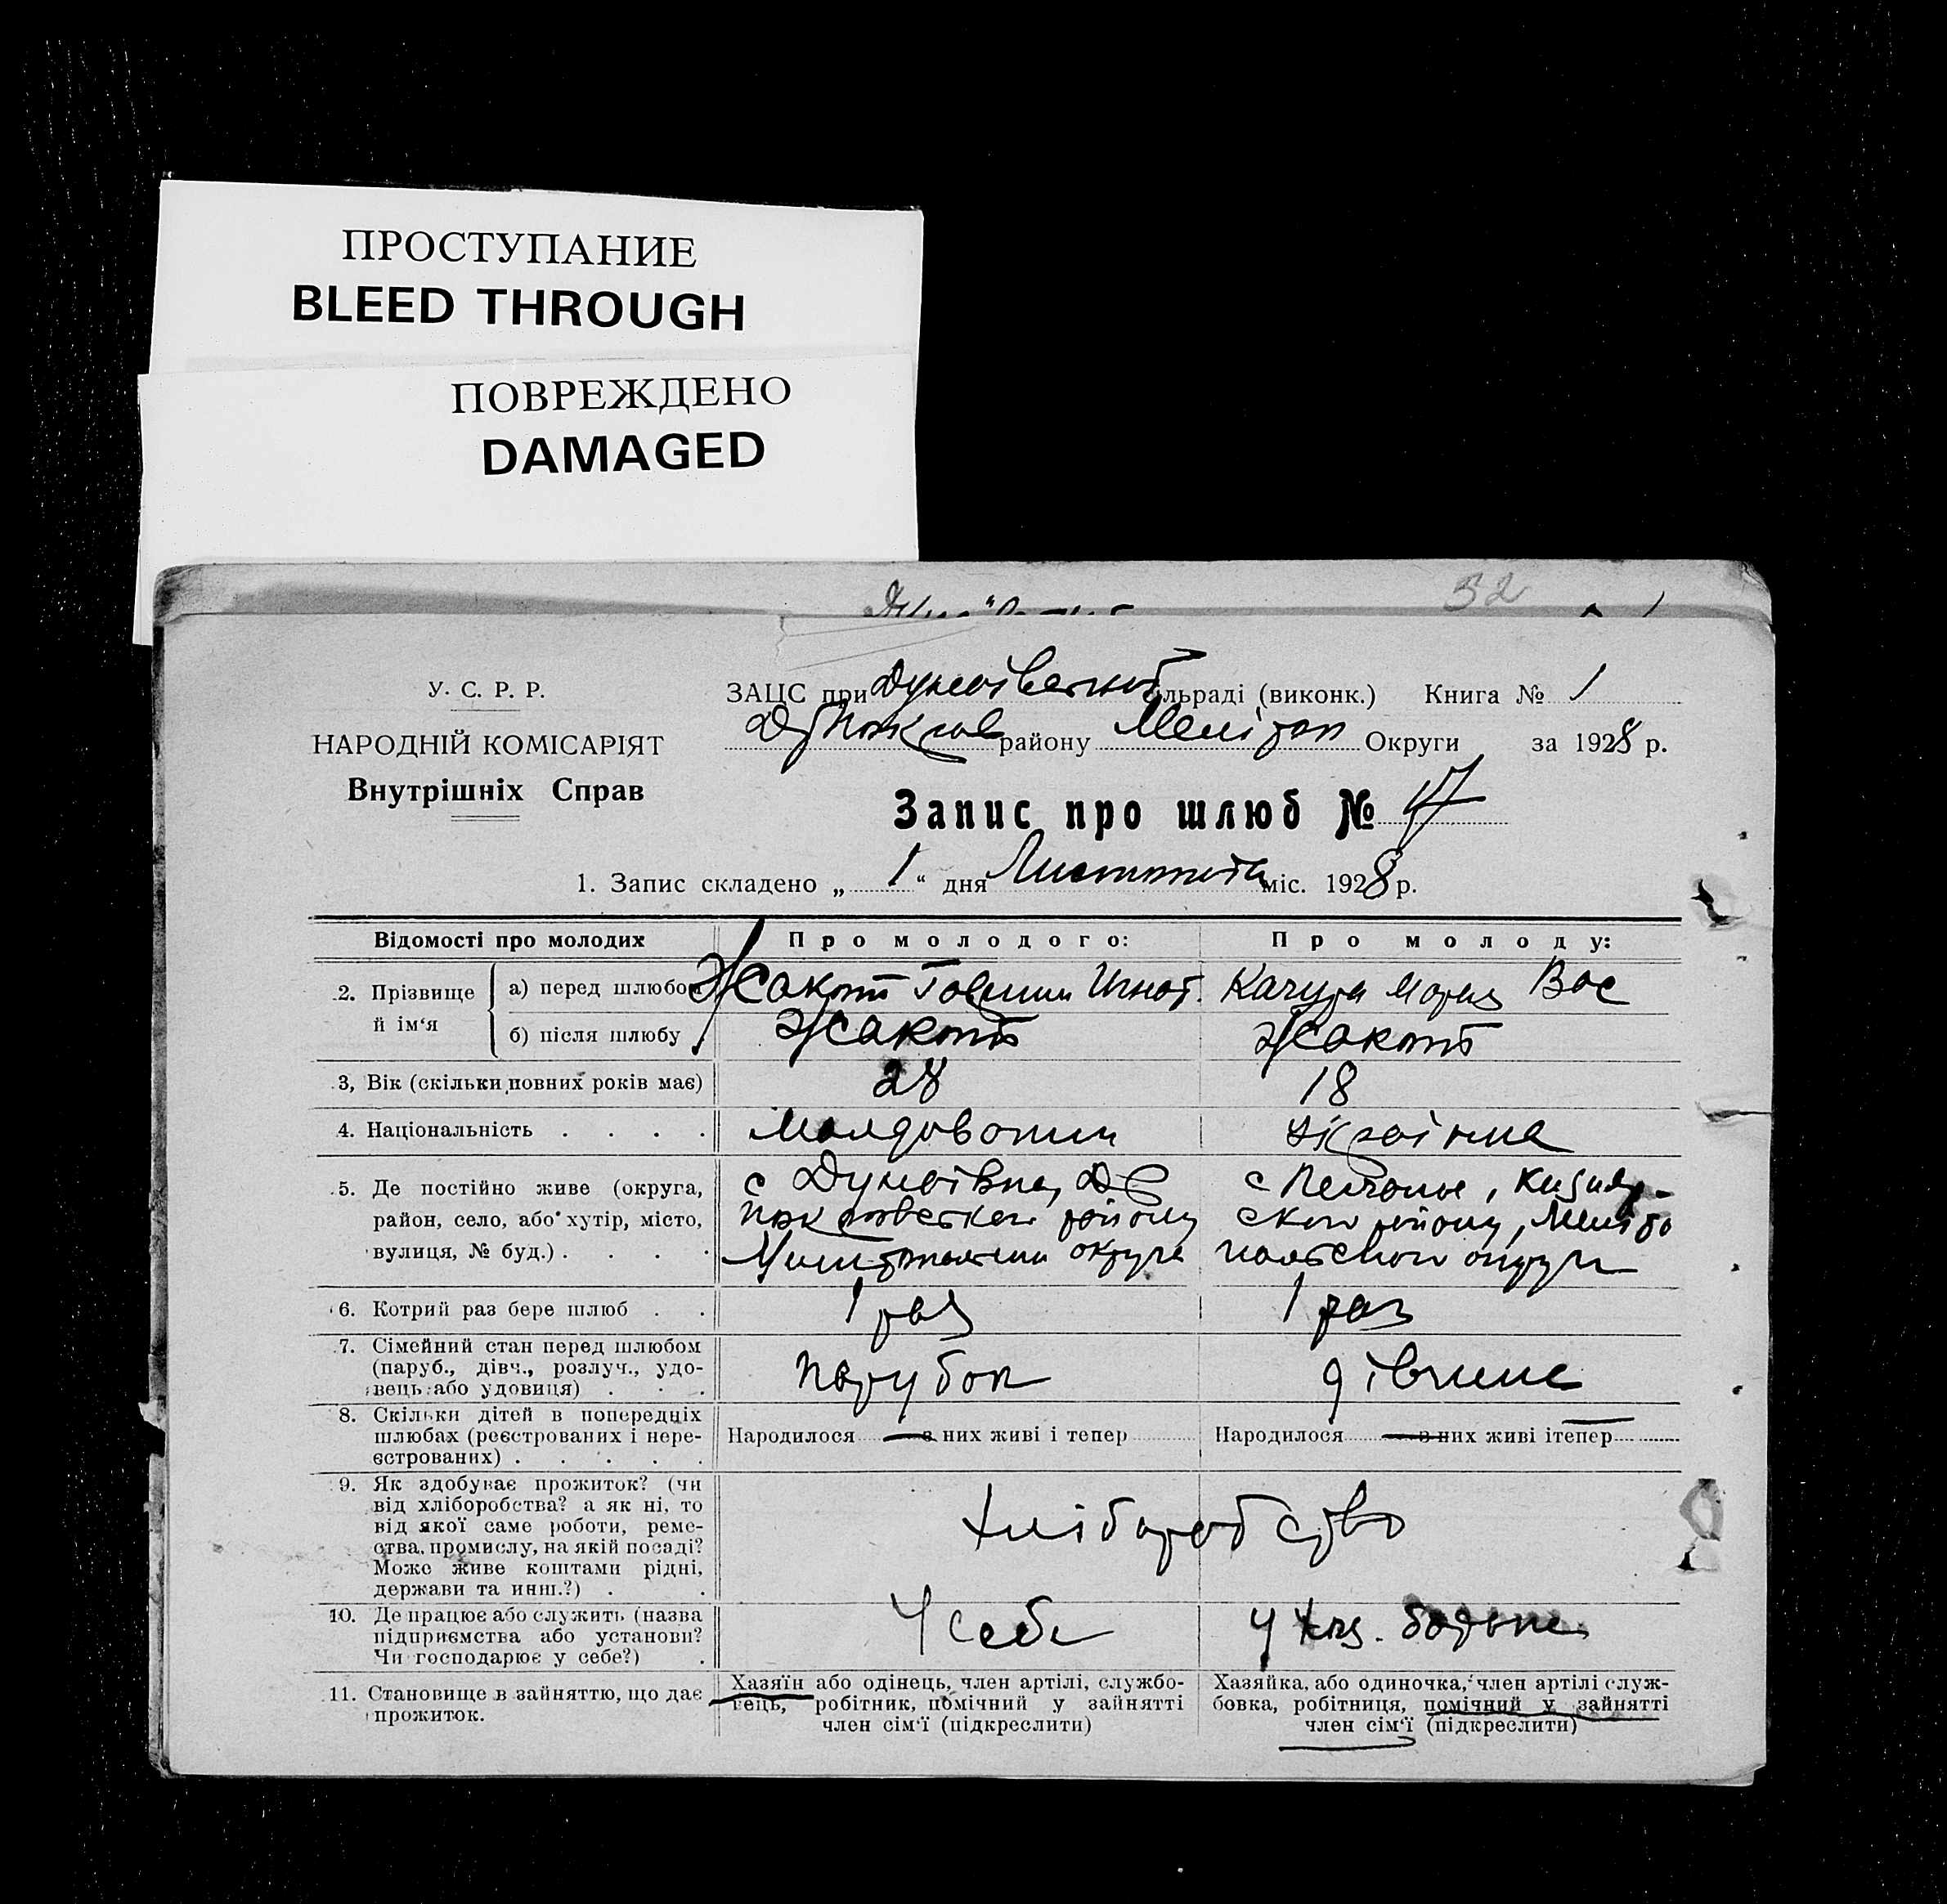 ПРОСТУПАНИЕ
BLEED THROUGH
ПОВРЕЖДЕНО
DAMAGED
52
У. С. Р. Р.
НАРОДНІЙ КОМІСАРІЯТ
Внутрішніх Справ
ЗАЦС при Дунаївській сільраді (виконк.) Книга № 1
району Мелітоп Округи за 1928 р.
Запис про шлюб № 17
1. Запис складено „ 1 “ дня Листопада міс. 1928 р.
Відомості про молодих
Про молодого:
Про молоду:
2. Прізвище й ім‘я
а) перед шлюбом
Жакот Игнат.
Качура Мария Вас
б) після шлюбу
Жакот
Жакот
3, Вік (скільки повних років має)
28
18
4. Національність . . . .
Молдованин
Українка
5. Де постійно живе (округа,
район, село, або хутір, місто,
вулиця, № буд.) . . . .
с Дунаївка,
району
округи
с
ского району, Меліто
польского округи
6. Котрий раз бере шлюб . .
1 раз
1 раз
7. Сімейний стан перед шлюбом
(паруб., дівч., розлуч., удо-
вець або удовиця) . . .
парубок
дівчина
8. Скільки дітей в попередніх
шлюбах (реєстрованих і нере-
єстрованих) . . . . .
Народилося — з них живі і тепер
Народилося — з них живі і тепер —
9. Як здобуває прожиток? (чи
від хліборобства? а як ні, то
від якої саме роботи, реме-
ства, промислу, на якій посаді?
Може живе коштами рідні,
держави та инш.?) . .
хліборобство
10. Де працює або служить (назва
підприємства або установи?
Чи господарює у себе?) .
У себе
у хаз. батька
11. Становище в зайняттю, що дає
прожиток.
Хазяїн або одінець, член артілі, службо-
вець, робітник, помічний у зайнятті
член сім‘ї (підкреслити)
Хазяйка, або одиночка, член артілі служ-
бовка, робітниця, помічний у зайнятті
член сім‘ї (підкреслити)